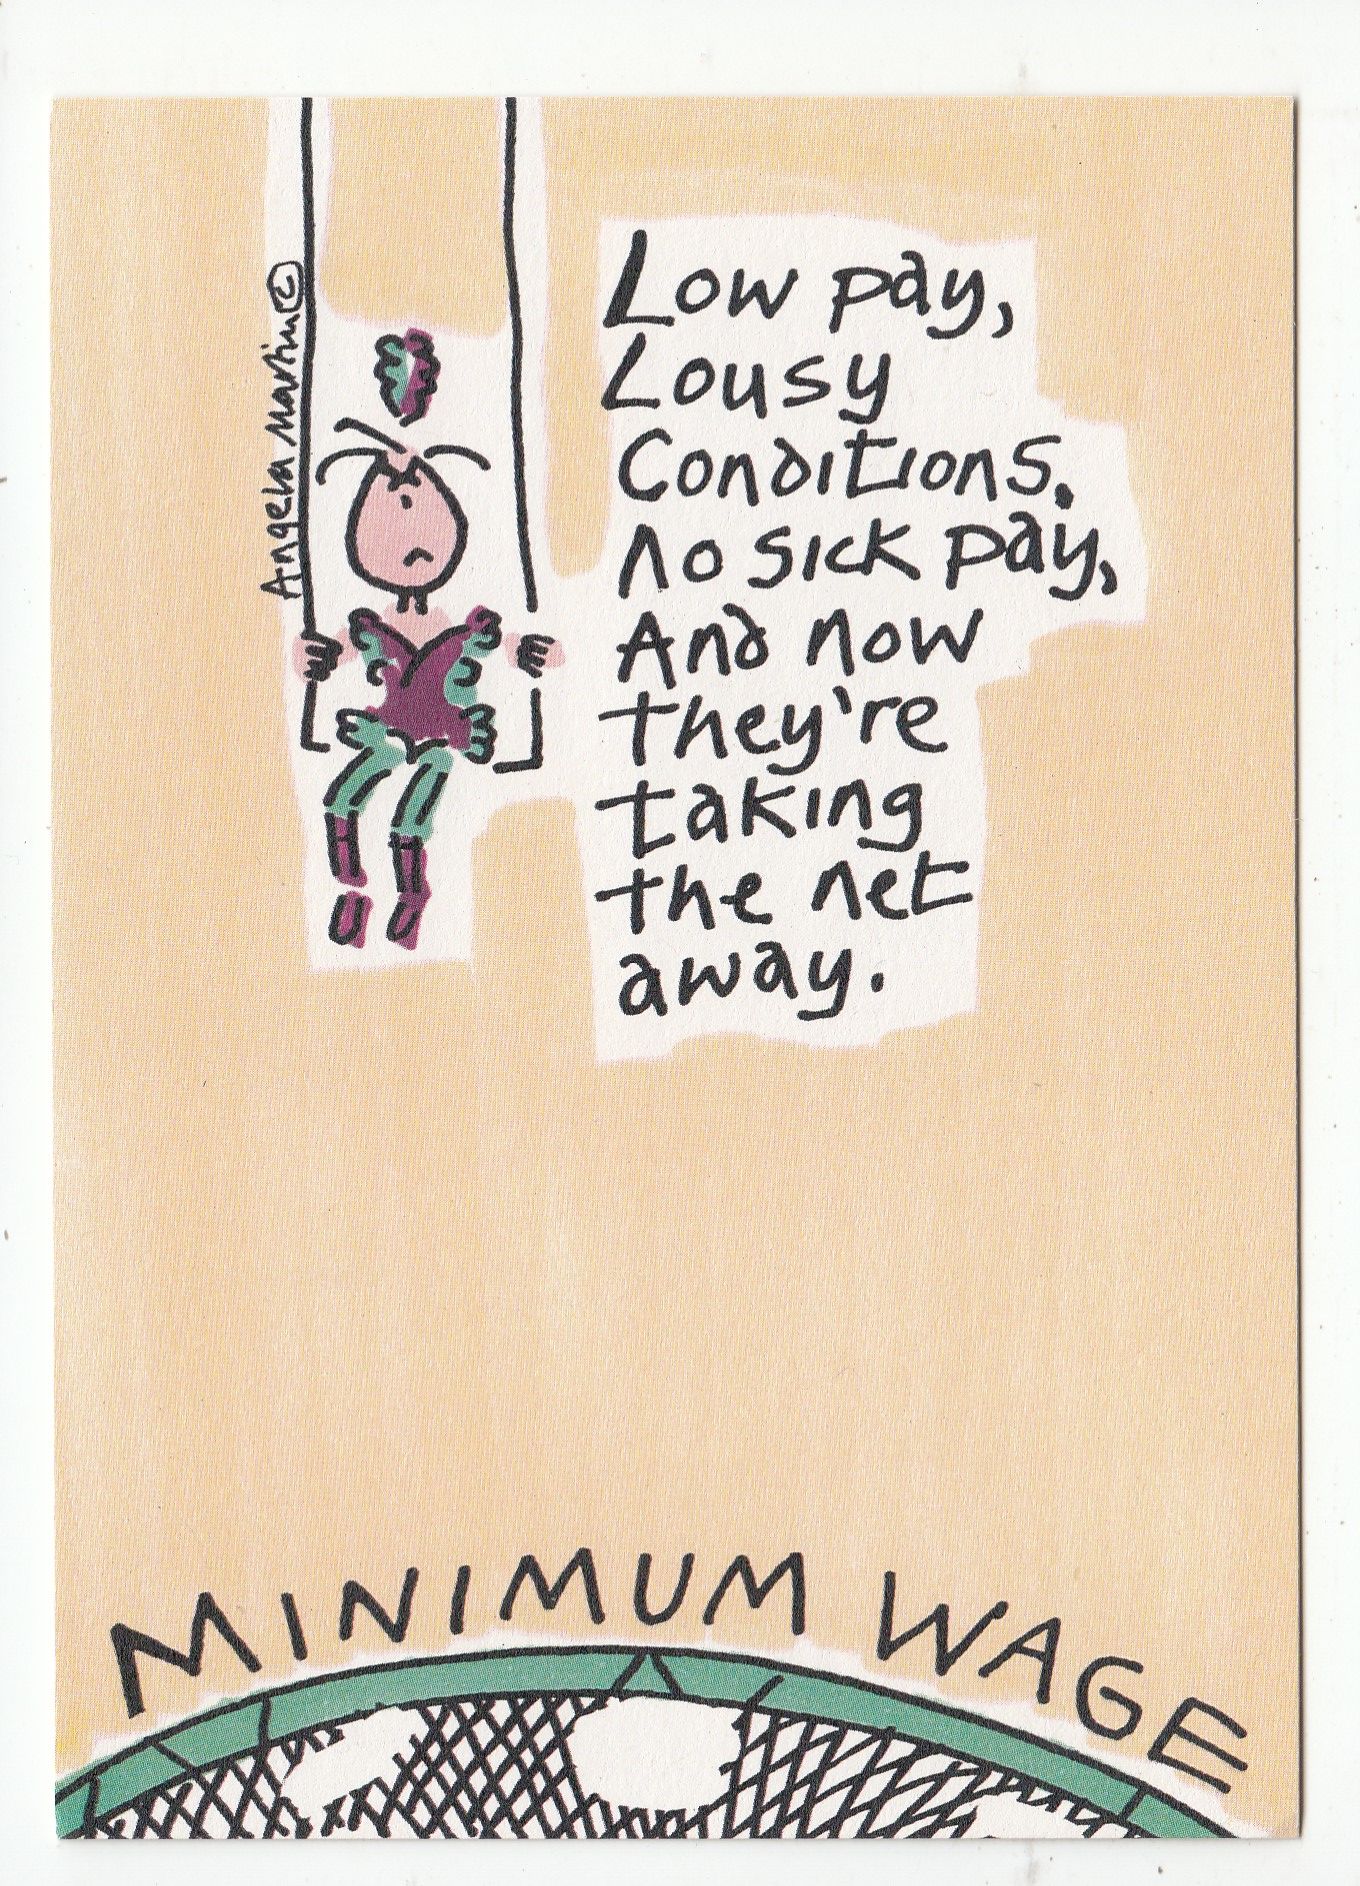 Angela Martin ©
Low pay,
Lousy
Conditions.
No sick pay,
And now
they're
taking
the net
away.
MINIMUM WAGE